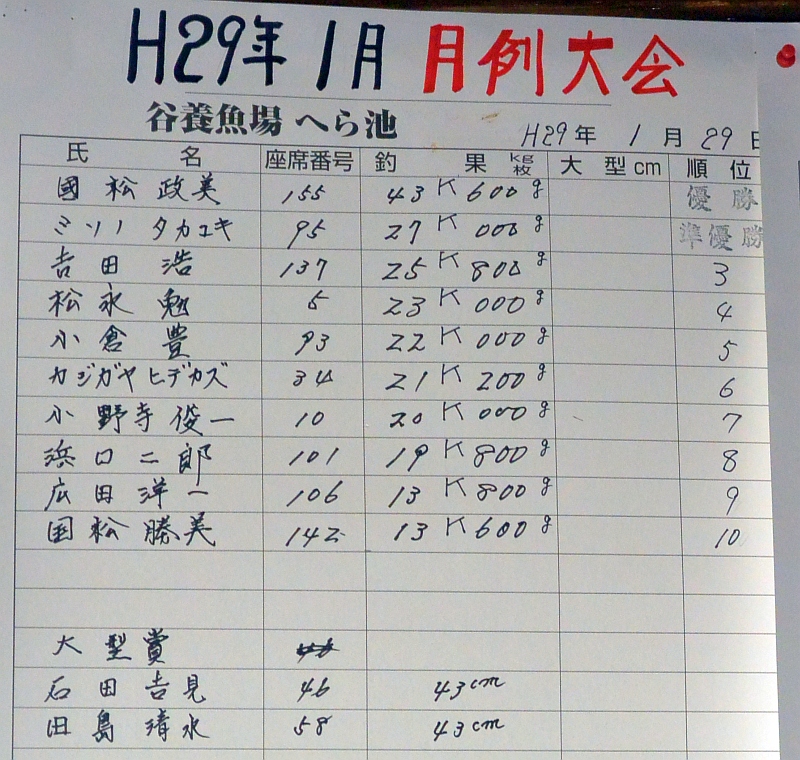 H29年 1月 月例大会
谷養魚場 へら池
H29年 1月 29日
氏 名 座席番号 釣 果 kg 枚 大 型 cm 順 位
國松政美 155 43K600g 優勝
ミソノタカユキ 95 27K000g 準優勝
吉田浩 137 25K800g 3
松永勉 5 23K000g 4
小倉豊 93 22K000g 5
カジガヤヒデカズ 34 21K200g 6
小野寺俊一 10 20K000g 7
浜口二郎 101 19K800g 8
広田洋一 106 13K800g 9
国松勝美 142 13K600g 10
大型賞
石田吉見 46 43cm
田島清水 58 43cm